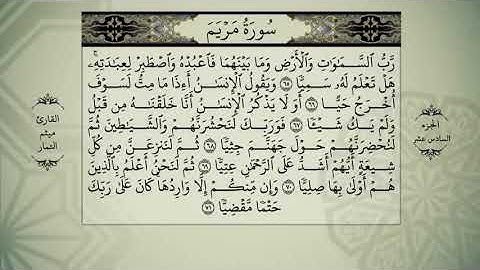 سُورَةُ مَرْيَمَ
رَّبُّ السَّمَـٰوَٰتِ وَالْأَرْضِ وَمَا بَيْنَهُمَا فَاعْبُدْهُ وَاصْطَبِرْ لِعِبَـٰدَتِهِۦ ۚ
هَلْ تَعْلَمُ لَهُۥ سَمِيًّا ٦٥ وَيَقُولُ الْإِنسَـٰنُ أَءِذَا مَا مِتُّ لَسَوْفَ
أُخْرَجُ حَيًّا ٦٦ أَوَلَا يَذْكُرُ الْإِنسَـٰنُ أَنَّا خَلَقْنَـٰهُ مِن قَبْلُ
وَلَمْ يَكُ شَيْـًٔا ٦٧ فَوَرَبِّكَ لَنَحْشُرَنَّهُمْ وَالشَّيَـٰطِينَ ثُمَّ
لَنُحْضِرَنَّهُمْ حَوْلَ جَهَنَّمَ جِثِيًّا ٦٨ ثُمَّ لَنَنزِعَنَّ مِن كُلِّ
شِيعَةٍ أَيُّهُمْ أَشَدُّ عَلَى الرَّحْمَـٰنِ عِتِيًّا ٦٩ ثُمَّ لَنَحْنُ أَعْلَمُ بِالَّذِينَ
هُمْ أَوْلَىٰ بِهَا صِلِيًّا ٧٠ وَإِن مِّنكُمْ إِلَّا وَارِدُهَا كَانَ عَلَىٰ رَبِّكَ
حَتْمًا مَّقْضِيًّا ٧١
الجزء
السادس عشر
القارئ
ميثم
التمار